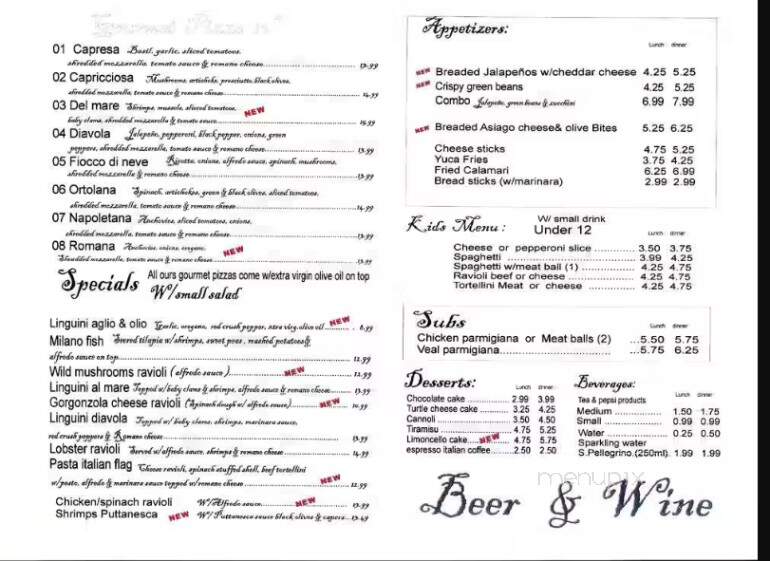 Gourmet Pizza 12"
01 Capresa Basil, garlic, sliced tomatoes,
shredded mozzarella, tomato sauce & romano cheese 13.99
02 Capricciosa Mushrooms, artichoke, prosciutto, black olives,
shredded mozzarella, tomato sauce & romano cheese 14.99
03 Del mare Shrimps, mussels, sliced tomatoes, NEW
baby clams, shredded mozzarella & tomato sauce 15.99
04 Diavola Jalapeño, pepperoni, black pepper, onions, green
peppers, shredded mozzarella, tomato sauce & romano cheese 13.99
05 Fiocco di neve Ricotta, onions, alfredo sauce, spinach, mushrooms,
shredded mozzarella, tomato sauce & romano cheese 13.99
06 Ortolana Spinach, artichokes, green & black olives, sliced tomatoes,
shredded mozzarella, tomato sauce & romano cheese 14.99
07 Napoletana Anchovies, sliced tomatoes, onions,
shredded mozzarella, tomato sauce & romano cheese 13.99
08 Romana Anchovies, onions, oregano, NEW
Shredded mozzarella, tomato sauce & romano cheese 13.99
Specials All ours gourmet pizzas come w/extra virgin olive oil on top
W/small salad
Linguini aglio & olio Garlic, oregano, red crush pepper, xtra virg. olive oil NEW 8.99
Milano fish Seared tilapia w/shrimps, sweet peas, mashed potatoes &
alfredo sauce on top 12.99
Wild mushrooms ravioli (alfredo sauce) NEW 12.99
Linguini al mare Topped w/baby clams & shrimps, alfredo sauce & romano cheese 13.99
Gorgonzola cheese ravioli (Spinach dough w/alfredo sauce) NEW 10.99
Linguini diavola Topped w/ baby clams, shrimps, marinara sauce,
red crush peppers & Romano cheese 13.99
Lobster ravioli Served w/alfredo sauce, shrimps & romano cheese 14.99
Pasta italian flag Cheese ravioli, spinach stuffed shell, beef tortellini
w/pesto, alfredo & marinara sauce topped w/romano cheese NEW 12.99
Chicken/spinach ravioli W/Alfredo sauce NEW 13.99
Shrimps Puttanesca NEW W/Puttanesca sauce black olives & capers 13.49
Appetizers:
Lunch dinner
NEW Breaded Jalapeños w/cheddar cheese 4.25 5.25
NEW Crispy green beans 4.25 5.25
Combo Jalapeño, green beans & zucchini 6.99 7.99
NEW Breaded Asiago cheese& olive Bites 5.25 6.25
Cheese sticks 4.75 5.25
Yuca Fries 3.75 4.25
Fried Calamari 6.25 6.99
Bread sticks (w/marinara) 2.99 2.99
Kids Menu: W/ small drink
Under 12 Lunch dinner
Cheese or pepperoni slice 3.50 3.75
Spaghetti 3.99 4.25
Spaghetti w/meat ball (1) 4.25 4.75
Ravioli beef or cheese 4.25 4.75
Tortellini Meat or cheese 4.25 4.75
Subs
Lunch dinner
Chicken parmigiana or Meat balls (2) ...5.50 5.75
Veal parmigiana 5.75 6.25
Desserts: Lunch dinner
Chocolate cake 2.99 3.99
Turtle cheese cake 3.25 4.25
Cannoli 3.50 4.50
Tiramisu 4.75 5.25
Limoncello cake NEW 4.75 5.75
espresso italian coffee 2.50 2.50
Beverages:
Tea & pepsi products Lunch dinner
Medium 1.50 1.75
Small 0.99 0.99
Water 0.25 0.50
Sparkling water
S.Pellegrino.(250ml). 1.99 1.99
menupix
Beer & Wine